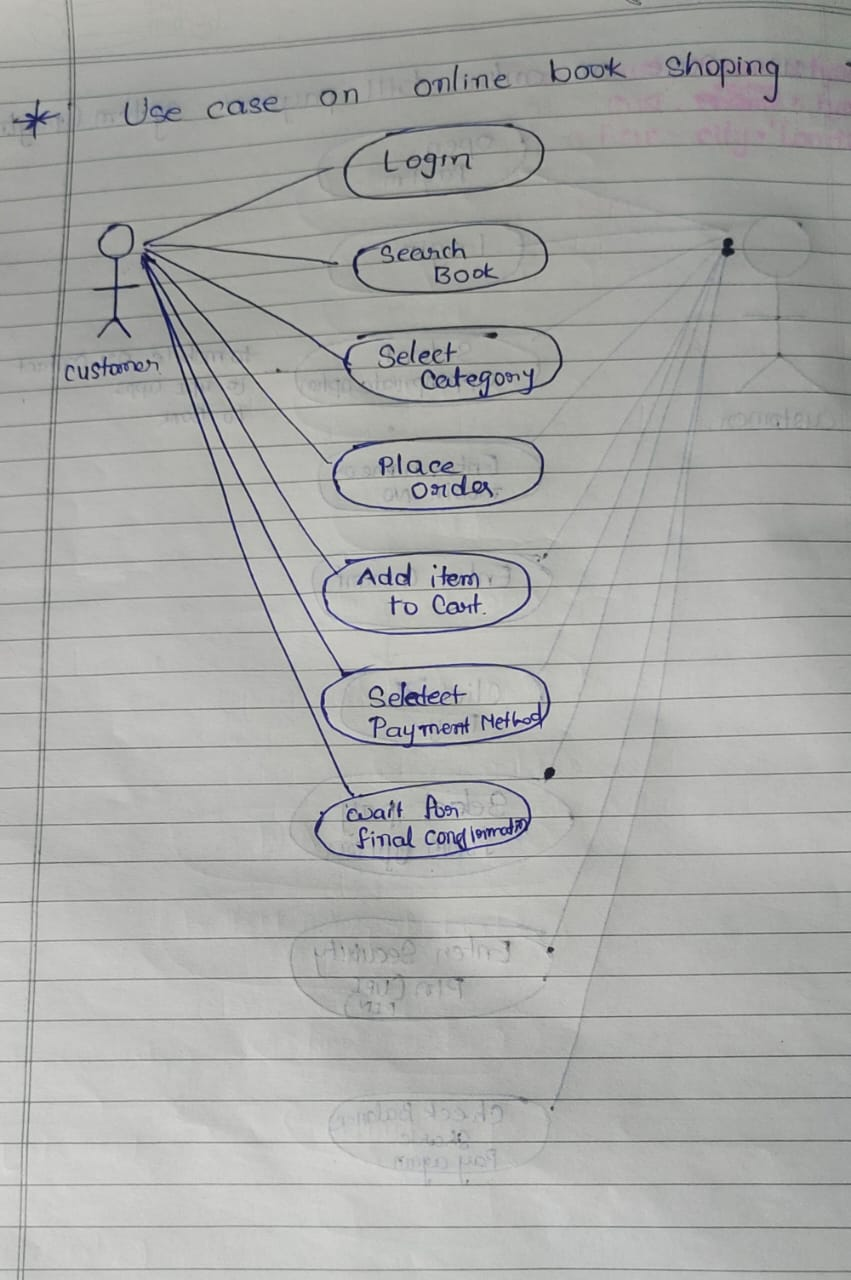 * Use case on online book shoping
Login
Search
Book
customer
Select
Category
Place
Order
Add item
to Cart.
Seleteet
Payment Method
wait for
final conglormation